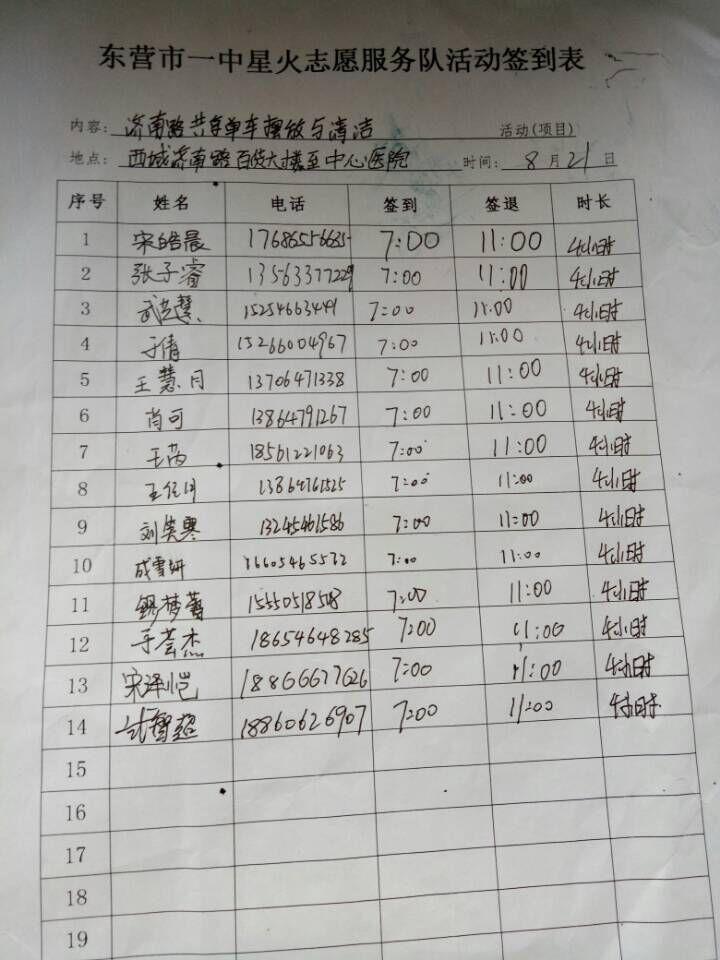 东营市一中星火志愿服务队活动签到表
内容: 济南路共享单车摆放与清洁 活动(项目)
地点: 西城济南路百货大楼至中心医院 时间: 8月21日
序号 姓名 电话 签到 签退 时长
1 宋皓晨 17686556635 7:00 11:00 4小时
2 张子睿 13563377229 7:00 11:00 4小时
3 15254663449 7:00 11:00 4小时
4 于倩 15266004967 7:00 11:00 4小时
5 王慧月 13706471338 7:00 11:00 4小时
6 肖可 13864791267 7:00 11:00 4小时
7 王芮 18561221063 7:00 11:00 4小时
8 13864761525 7:00 11:00 4小时
9 刘笑寒 13245461586 7:00 11:00 4小时
10 成雪妍 16605465572 7:00 11:00 4小时
11 7:00 11:00 4小时
12 于芸杰 18654648285 7:00 11:00 4小时
13 宋泽恺 18866677626 7:00 11:00 4小时
14 武智超 18860626907 7:00 11:00 4小时
15
16
17
18
19